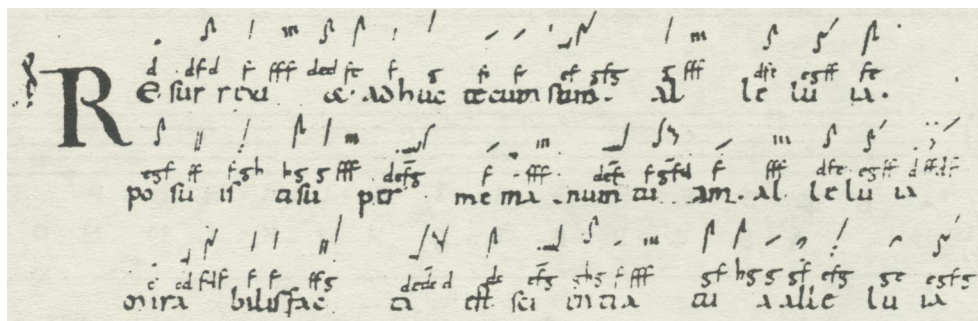 d dfd f fff ded fe f g f f ef gfg g fff dfe egff fe
Resurrexi & adhuc tecum sum. al le lu ia.
egf ff fgh hg g fff defg f fff def fgfd f fff dfe egff dffdf
po su is ti su per me ma num tu am. al le lu ia
c cd fdf f f ffg dcded d de efg ghg f fff gf hg g gf efg ge egfg
mira bilis fac ta est sci entia tu a alle lu ia